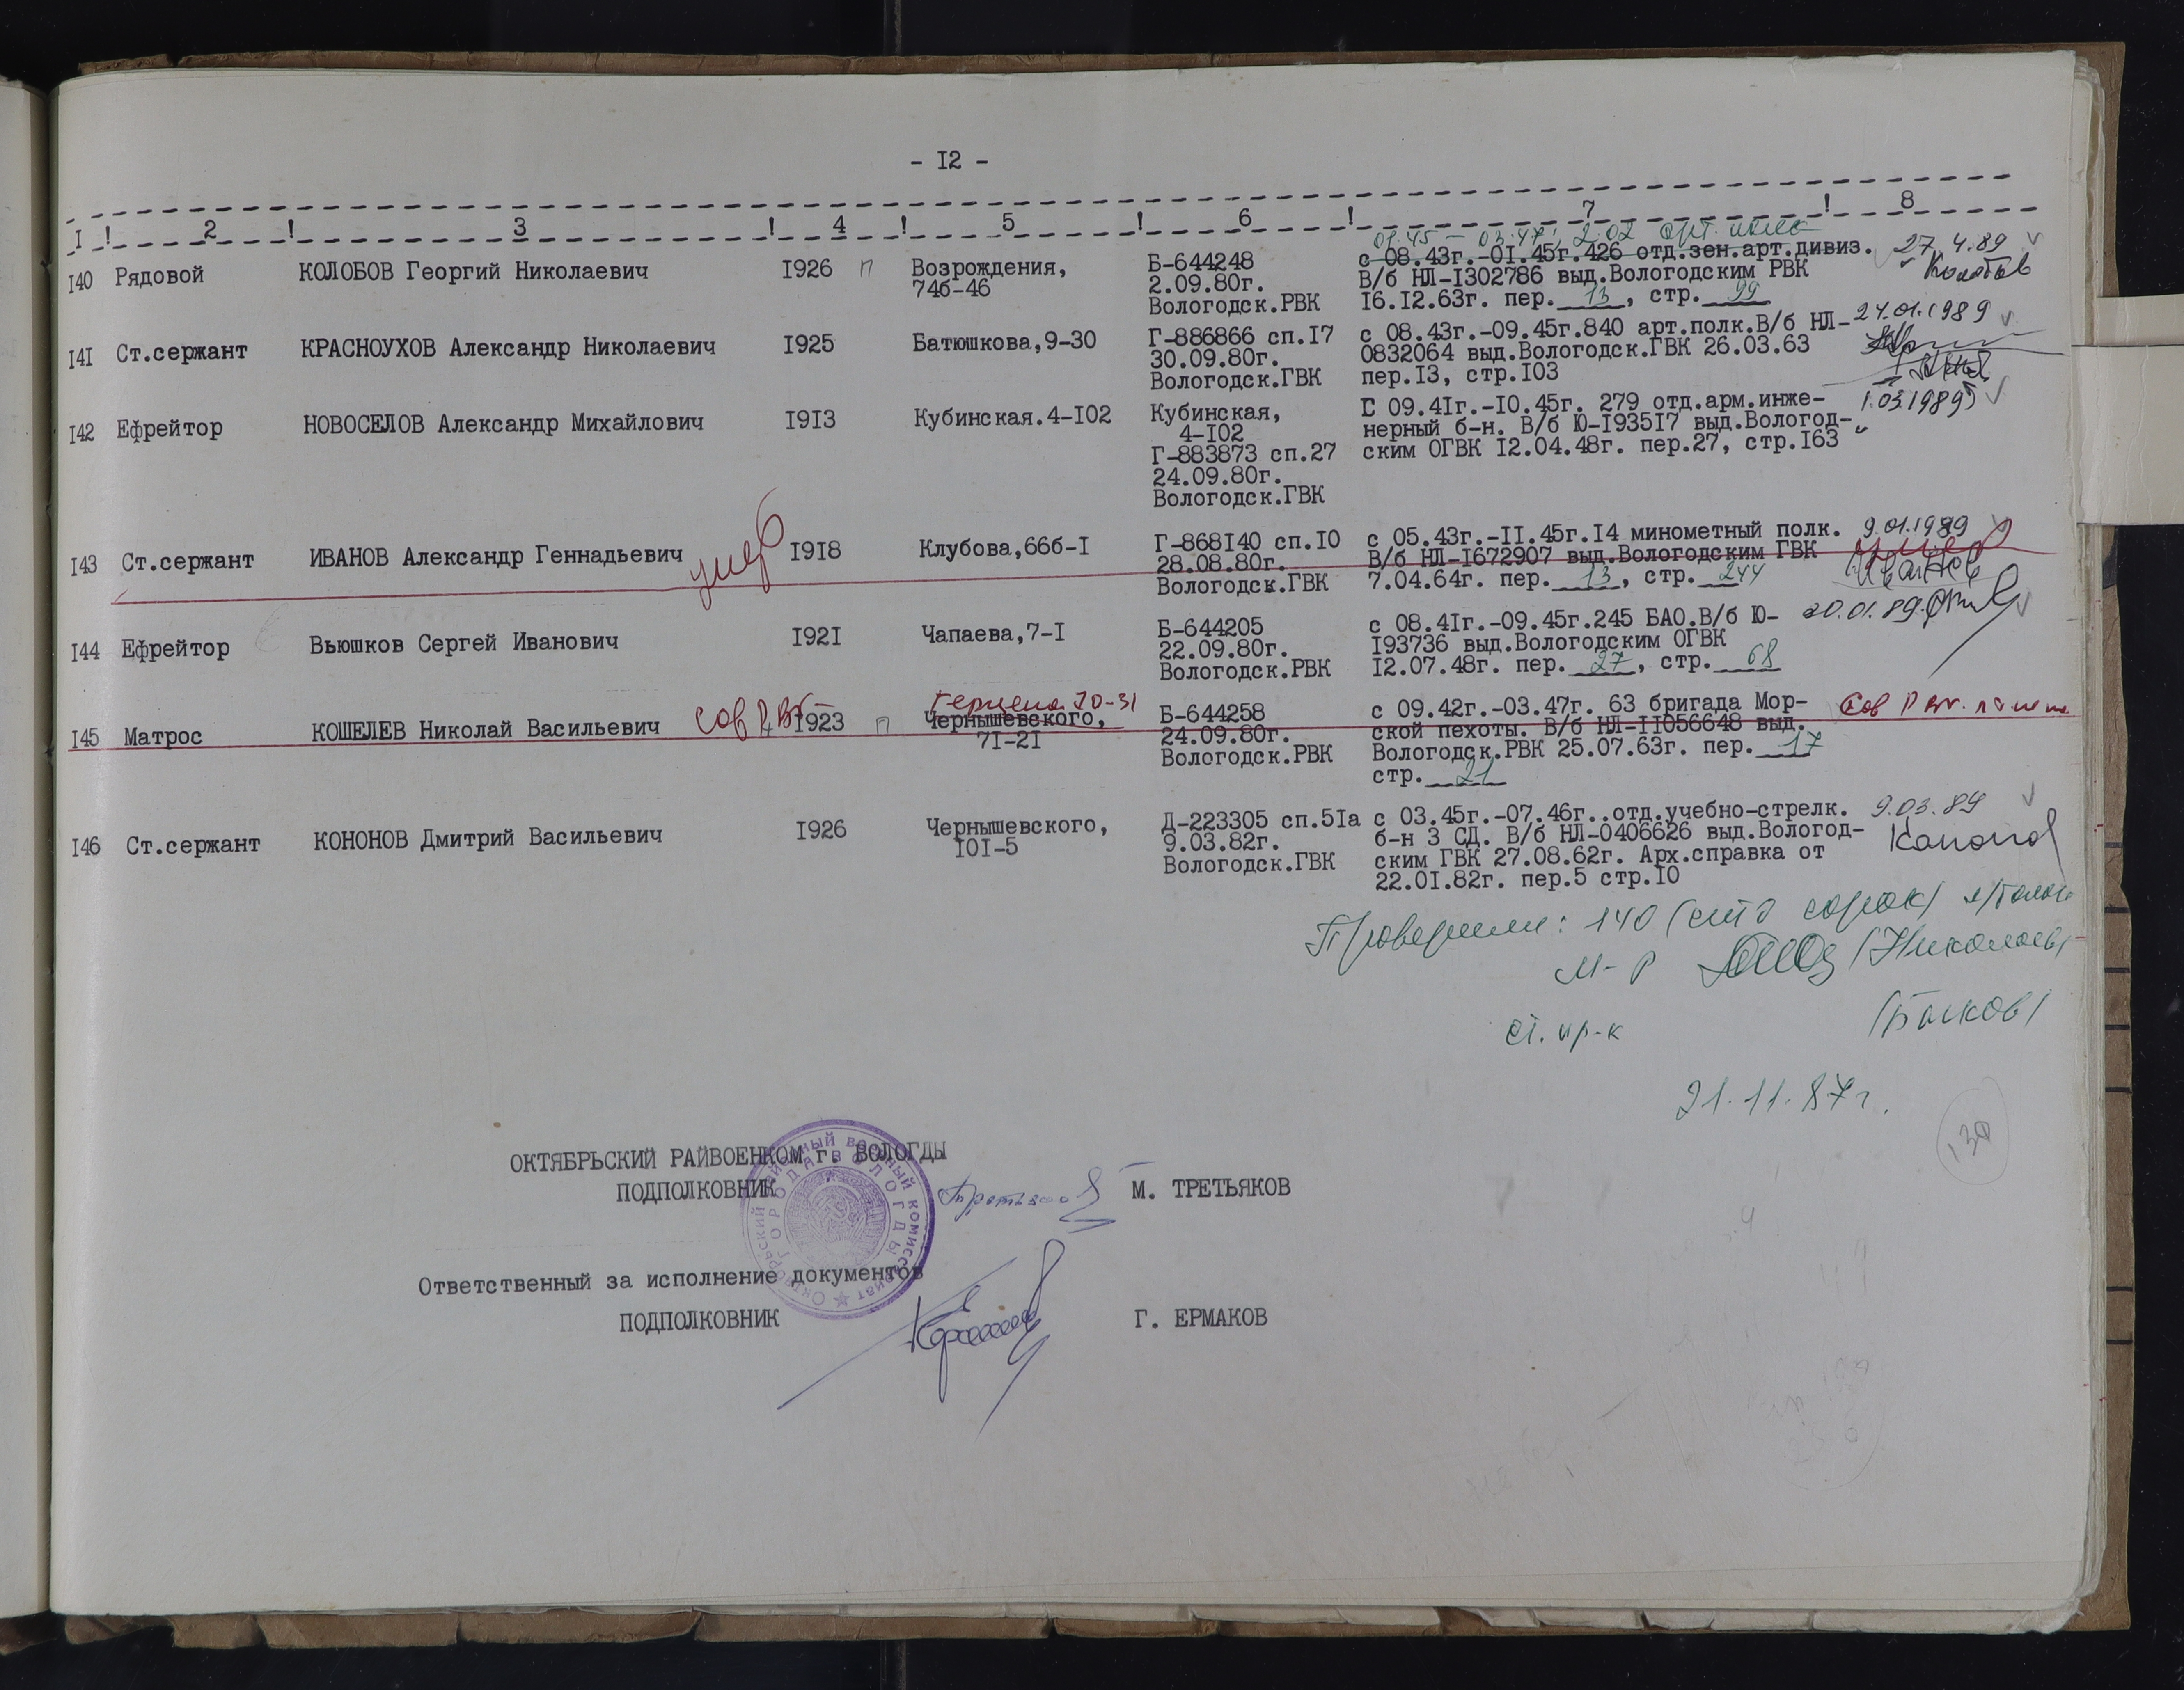 - I2 -
I ! 2 ! 3 ! 4 ! 5 ! 6 ! 7 ! 8
01.45 - 03.47г. 202 арт. полк
I40 Рядовой КОЛОБОВ Георгий Николаевич I926 п Возрождения, Б-644248 с 08.43г.-0I.45г.426 отд.зен.арт.дивиз. 27.4.89
74б-46 2.09.80г. В/б НЛ-I302786 выд.Вологодским РВК Колобов
Вологодск.РВК I6.I2.63г. пер. 13, стр. 99
I4I Ст.сержант КРАСНОУХОВ Александр Николаевич I925 Батюшкова,9-30 Г-886866 сп.I7 с 08.43г.-09.45г.840 арт.полк.В/б НЛ- 24.01.1989
30.09.80г. 0832064 выд.Вологодск.ГВК 26.03.63
Вологодск.ГВК пер.I3, стр.I03
I42 Ефрейтор НОВОСЕЛОВ Александр Михайлович I9I3 Кубинская.4-I02 Кубинская, С 09.4Iг.-I0.45г. 279 отд.арм.инже- 1.03.1989
4-I02 нерный б-н. В/б Ю-I935I7 выд.Вологод-
Г-883873 сп.27 ским ОГВК I2.04.48г. пер.27, стр.I63
24.09.80г.
Вологодск.ГВК
I43 Ст.сержант ИВАНОВ Александр Геннадьевич умер I9I8 Клубова,66б-I Г-868I40 сп.I0 с 05.43г.-II.45г.I4 минометный полк. 9.01.1989
28.08.80г. В/б НЛ-I672907 выд.Вологодским ГВК умер
Вологодск.ГВК 7.04.64г. пер. 13, стр. 244 Иванов
I44 Ефрейтор Вьюшков Сергей Иванович I92I Чапаева,7-I Б-644205 с 08.4Iг.-09.45г.245 БАО.В/б Ю- 20.01.89.
22.09.80г. I93736 выд.Вологодским ОГВК
Вологодск.РВК I2.07.48г. пер. 27, стр. 68
Герцена 70-31
I45 Матрос КОШЕЛЕВ Николай Васильевич Сов РВК I923 п Чернышевского, Б-644258 с 09.42г.-03.47г. 63 бригада Мор- Сов
7I-2I 24.09.80г. ской пехоты. В/б НЛ-II056648 выд.
Вологодск.РВК Вологодск.РВК 25.07.63г. пер. 17
стр. 21
I46 Ст.сержант КОНОНОВ Дмитрий Васильевич I926 Чернышевского, Д-223305 сп.5Iа с 03.45г.-07.46г..отд.учебно-стрелк. 9.03.89
I0I-5 9.03.82г. б-н 3 СД. В/б НЛ-0406626 выд.Вологод-
Вологодск.ГВК ским ГВК 27.08.62г. Арх.справка от
22.0I.82г. пер.5 стр.I0
Проверили: 140 (сто сорок)
м-р (Николаев)
ст. пр-к (Быков)
21.11.87г.
130
ОКТЯБРЬСКИЙ РАЙВОЕНКОМ г. ВОЛОГДЫ
ПОДПОЛКОВНИК М. ТРЕТЬЯКОВ
Ответственный за исполнение документов
ПОДПОЛКОВНИК Г. ЕРМАКОВ